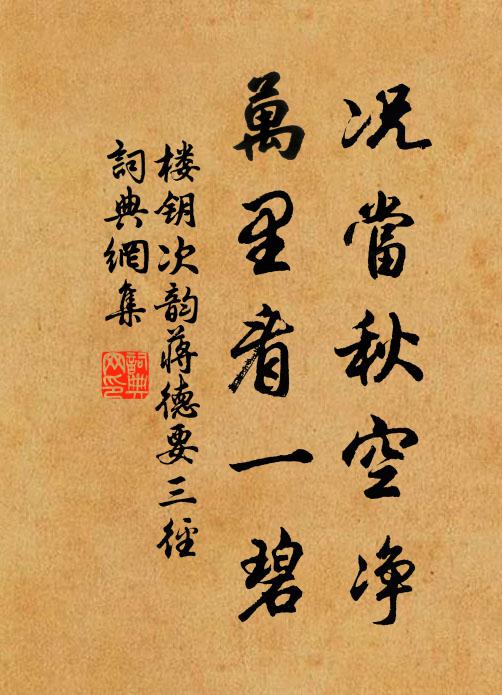 况當秋空净
萬里看一碧
楼钥次韵蒋德要三径
詞典網集
詞典網印